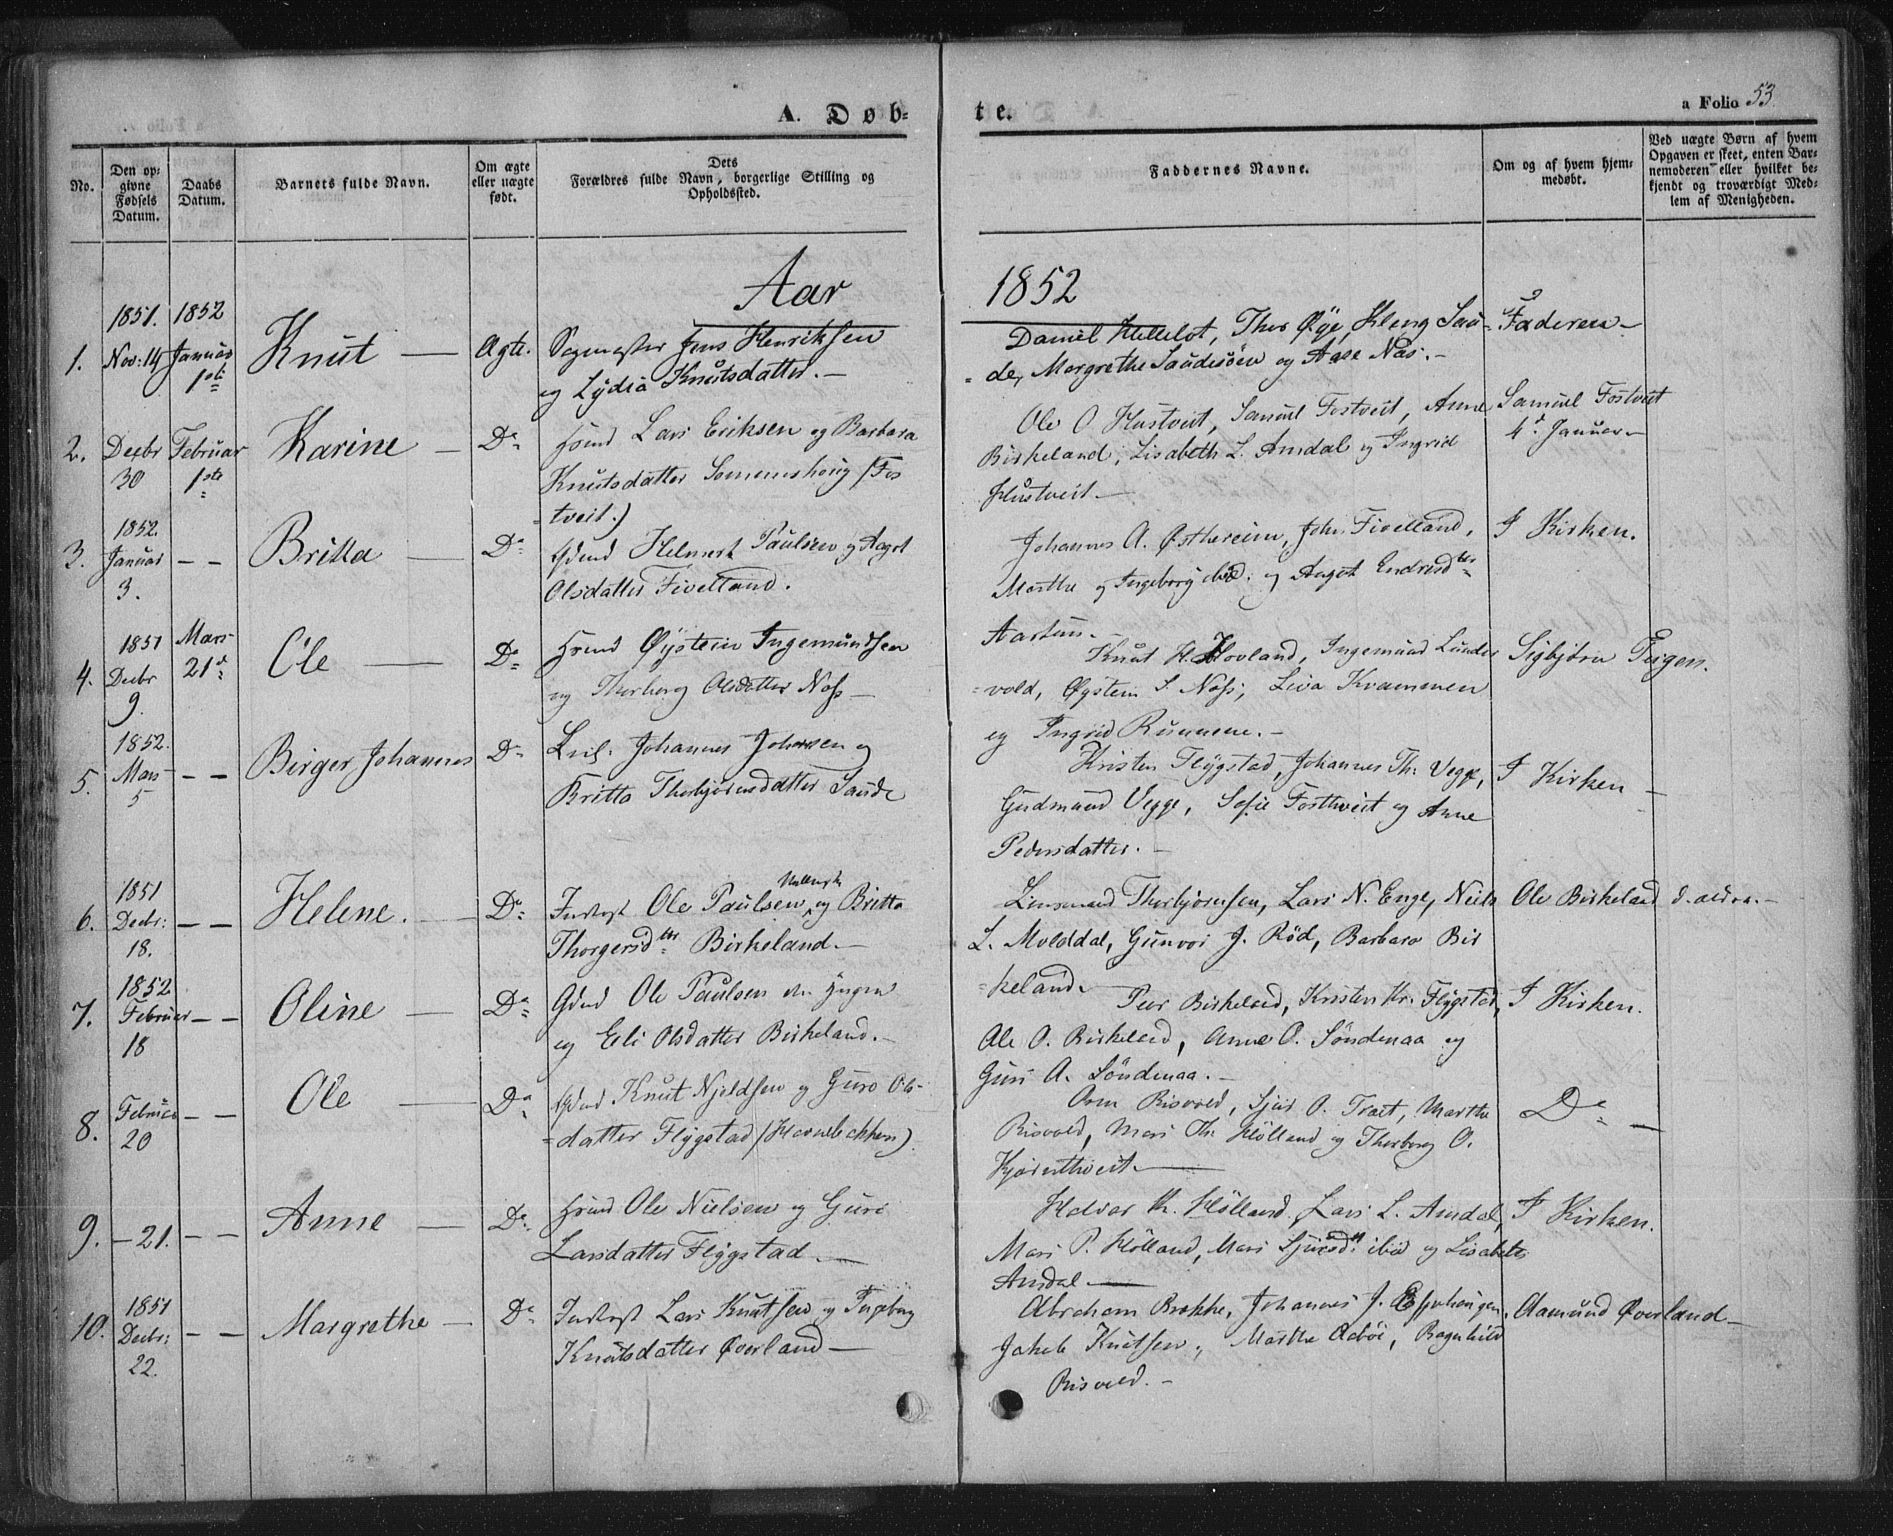 A. Døb-
te.
a Folio 53
No.
Den op-
givne
Fødsels
Datum.
Daabs
Datum.
Barnets fulde Navn.
Om ægte
eller uægte
født.
Dets
Forældres fulde Navn, borgerlige Stilling og
Opholdssted.
Faddernes Navne.
Om og af hvem hjem-
medøbt.
Ved uægte Børn af hvem
Opgaven er skeet, enten Bar-
nemoderen eller hvilket be-
kjendt og troværdigt Med-
lem af Menigheden.
Aar
1852
1851. 1852
1. Nov: 14 Januar 1ste Knut — Ægte. Sogneprester Jens Henriksen
og Lydia Knutsdatter. —
Daniel Helleløt, Thor Øye, Kleng Sau-
de, Margrethe Saudesöen og Aase Nas. —
Faderen —
2. Decbr 30 Februar 1ste Karine — Do Hmd Lars Eriksen og Barbara
Knutsdatter Sommershoug (Fos
tveit.)
Ole O. Hustveit, Samuel Fostveit, Anne
Birkeland, Lisabeth L. Amdal og Ingrid
Hustveit —
Samuel Fostveit
4de Januar —
3. 1852. Januar 3. — — Britta — Do Gdmd Helmerk Paulsen og Aagot
Olsdatter Fivelland.
Johannes A. Østhereim, John Fivelland,
Marthe og Ingeborg ibid: og Angot Endresdtr
Aartun. —
I Kirken.
4. 1851 Decbr 9. Mars 21de Ole — Do Hmd Øystein Ingemundsen
og Thorborg Olsdatter Nass —
Knut H. Hovland, Ingemund Lunde
vold, Øystein S. Nass, Liva Kvammen
og Ingrid Rummene. —
Sigbjörn Teigen.
5. 1852. Mars 5 — — Birger Johannes Do Leil. Johannes Johnsen og
Britta Thorbjörnsdatter Saude
Kristen Flygstad, Johannes Th: Vegge,
Gudmund Vegge, Sofie Fosthveit og Anne
Pedersdatter. —
I Kirken —
6. 1851 Decbr: 18. — — Helene. — Do Inderst Ole Paulsen og Britta
Thorgersdtr Birkeland. —
Linsmand Thorbjörnsen, Lars N. Enge, Niels
L. Molddal, Gunvor J. Röd, Barbara Bir
keland. —
Ole Birkeland
7. 1852 Februar 18 — — Oline — Do Gdmd Ole Paulsen den yngre
og Eli Olsdatter Birkeland. —
Peer Birkeland, Kristen Kr. Flygstad,
Ole O. Birkeland, Anne O. Söndenaa og
Guri A. Söndenaa. —
I Kirken.
8. Februar 20 — — Ole — Do Gdmd Knut Njeldsen og Guro Ols-
datter Flygstad (Havrebekken).
Orm Risvold, Sjur O. Traet, Marthe
Risvold, Mari Th. Hölland og Thorborg O.
Kjörrethveit —
Do —
9. — 21. — — Anne — Do. Hmd Ole Nielsen og Guro
Larsdatter Flygstad —
Halvor Th. Hölland, Lars L. Amdal,
Mari P. Hölland, Mari Sjursdtr ibid og Lisabeth
Amdal —
I Kirken.
10. 1851 Decbr: 22. — — Margrethe — Do Inderst Lars Knutsen og Ingeborg
Knutsdatter Øverland —
Abraham Brekke, Johannes J. Espehougen,
Jakob Knutsen, Marthe Aabøe, Ragnhild
Risvold. —
Aamund Øverland —